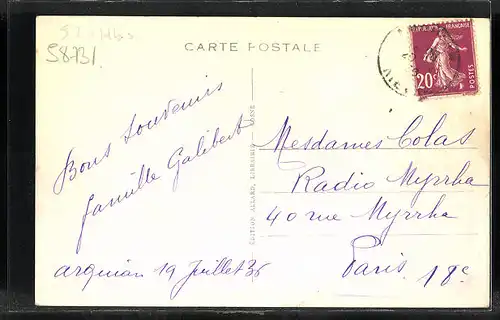 58731
CARTE POSTALE
FRANÇAISE
20c
POSTES
Bons Souvenirs
famille Galibert
arquian 19 Juillet 36
EDITION ALLARD, LIBRAIRIE
Mesdames Colas
Radio Myrrha
40 rue Myrrha
Paris 18e